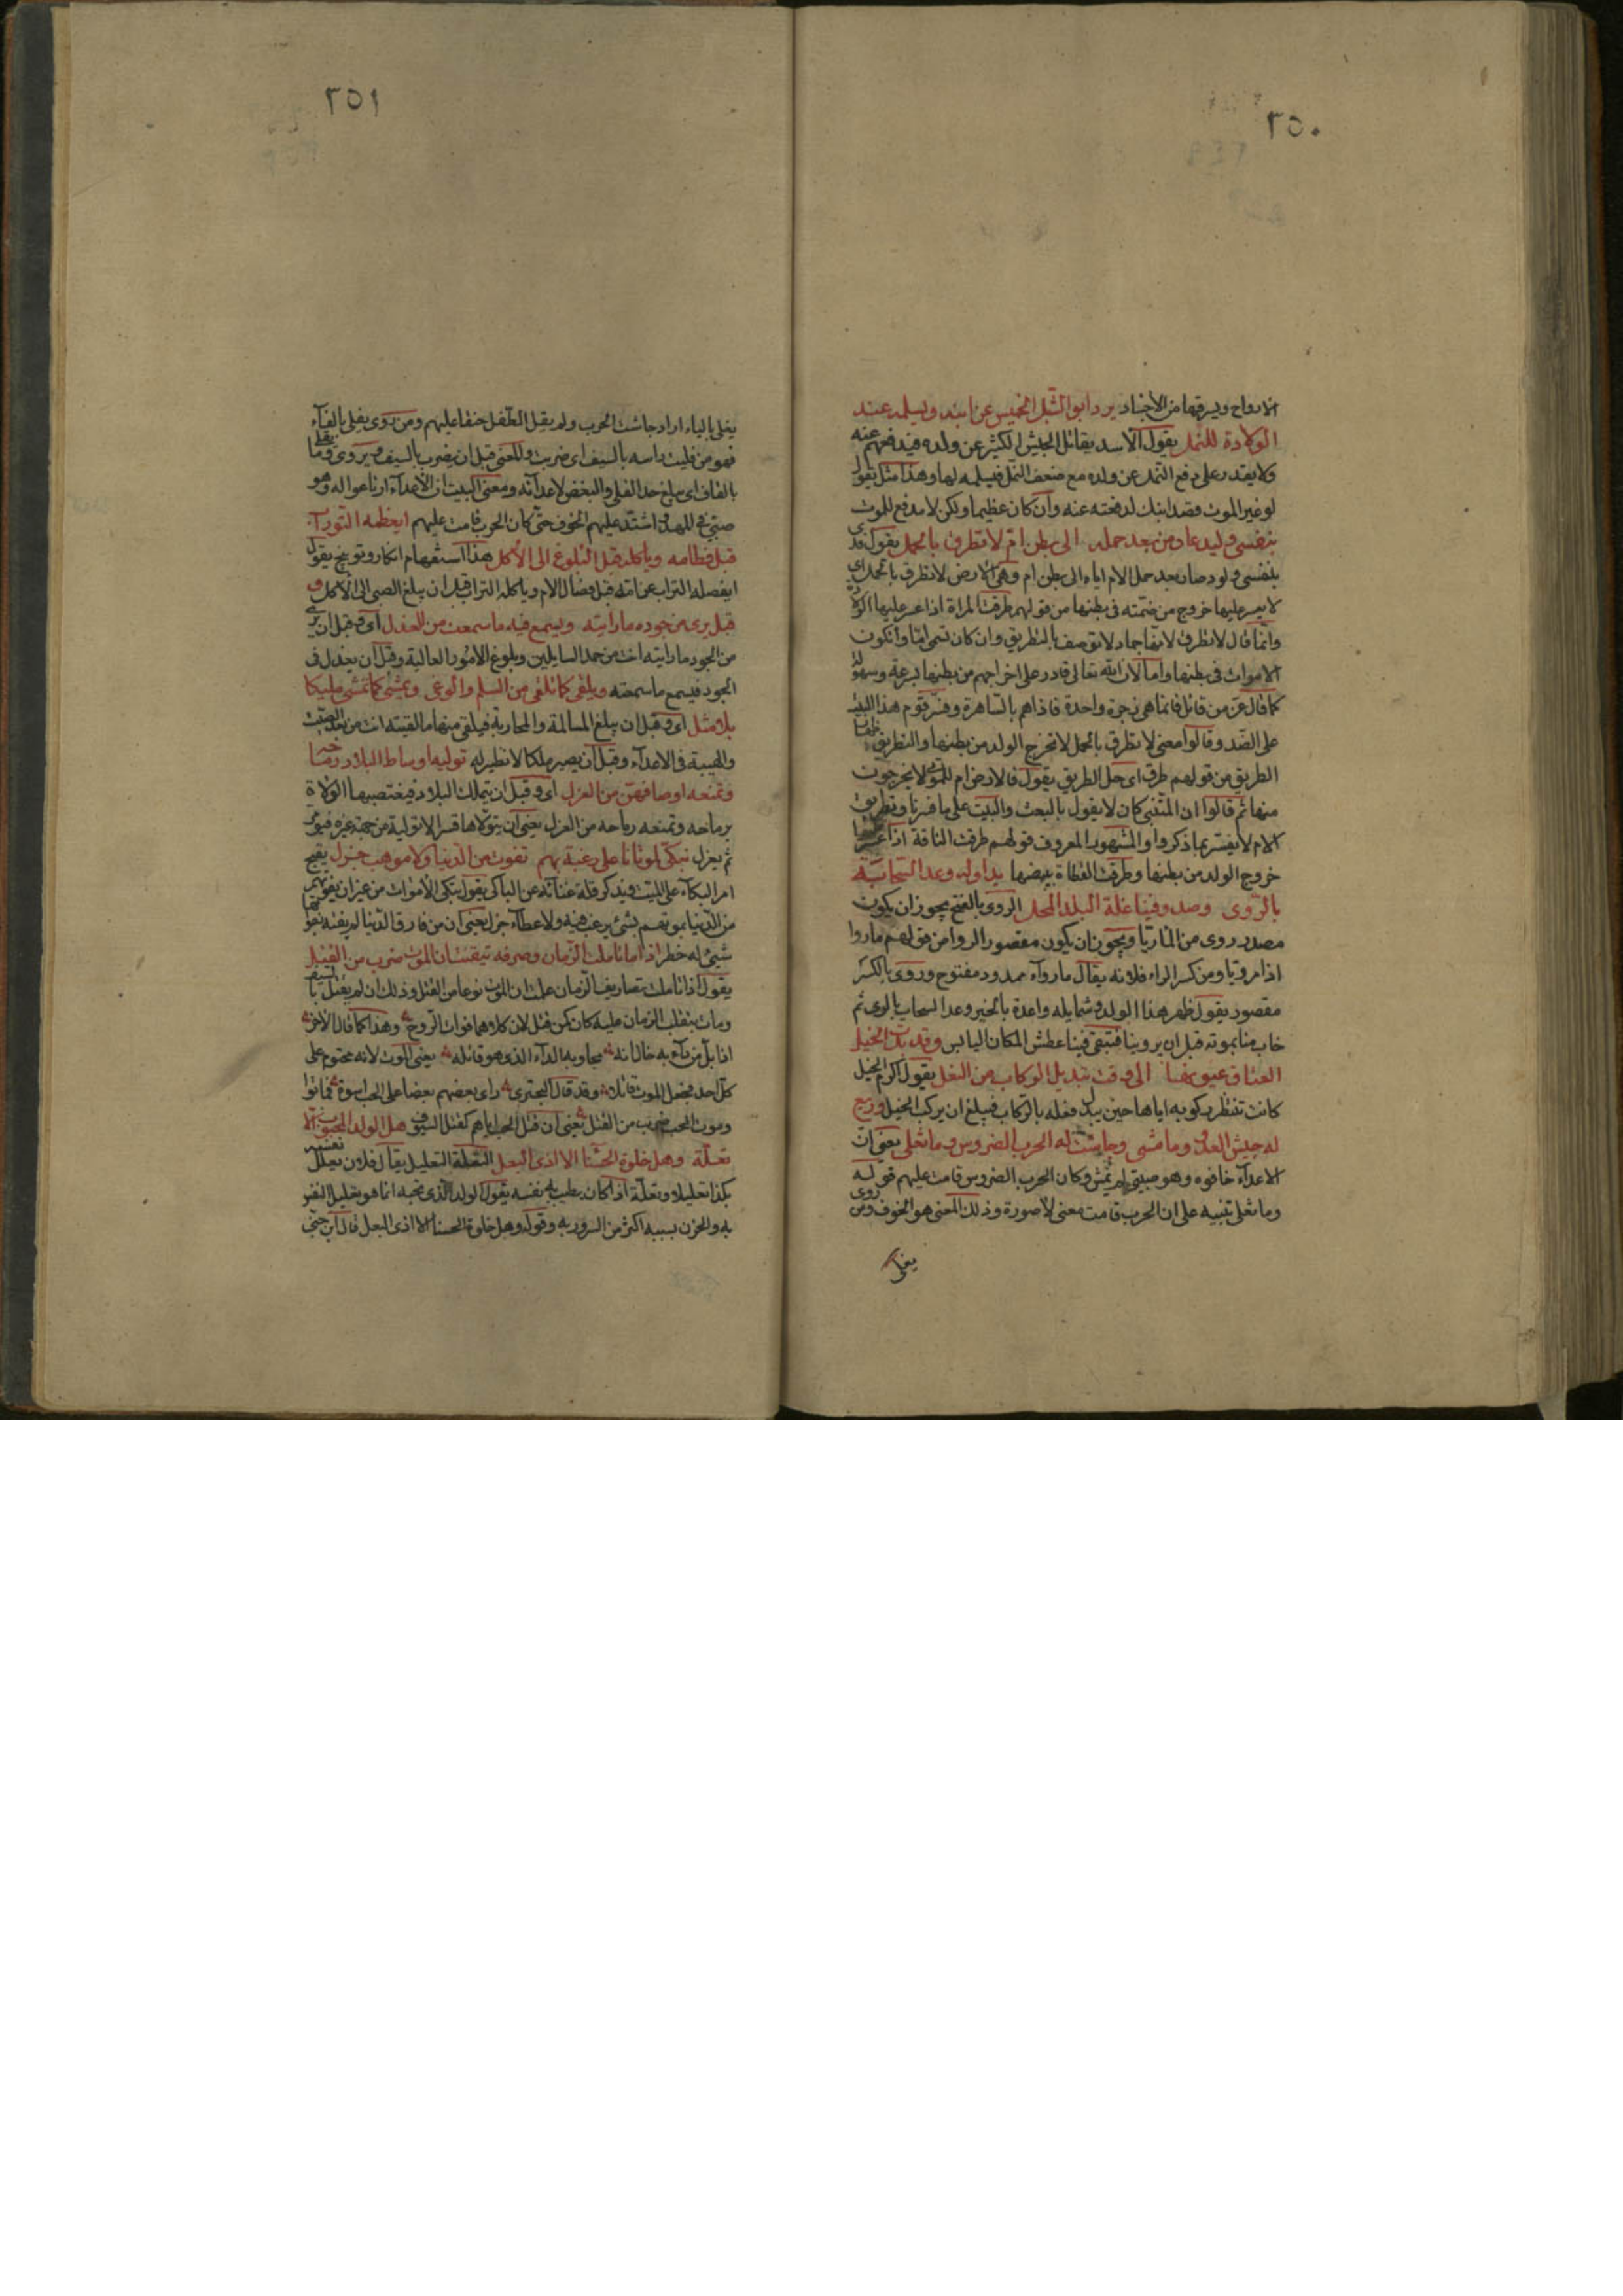 ٢٥٠
الارواح ويسرقها من الأجساد يرد ابو الشبل الخميس عن ابنه ويسلمه عند
الولادة للنمل يقول الاسد يقاتل الجيش الكثير عن ولده فيدفعهم عنه
ولا يقدر على دفع النمل عن ولده مع ضعف النمل فيسلمه لها وهذا مثل يقول
لو غير الموت قصد ابنك لدفعته عنه وان كان عظيما ولكن لا مدفع للموت
بنفسي وليد عاد من بعد حمله الى بطن ام لا تطرق بالحمل يقول فدى
بنفسي ولود صار بعد حمل الام اياه الى بطن ام وهي الارض لا تطرق بالحمل اي
لا يعسر عليها خروج من ضمته في بطنها من قولهم طرقت المراة اذا عسر عليها الولادة
وانما قال لا تطرق لانها جماد لا توصف بالتطريق وان كان تسمى اما وان تكون
الاموات في بطنها واما لان الله تعالى قادر على اخراجهم من بطنها بسرعة وسهولة
كما قال عز من قائل فانما هي زجرة واحدة فاذا هم بالساهرة وفسر قوم هذا البيت
على الضد وقالوا معنى لا تطرق بالحمل لا تخرج الولد من بطنها والتطريق
الطريق من قولهم طرق اي خل الطريق يقول فالارض ام الموتى لا يخرجون
منها ثم قالوا ان المتنبي كان لا يقول بالبعث والبيت على ما فسرنا وتطريق
الام لا يفسر بما ذكروا والمشهور المعروف قولهم طرقت الناقة اذا عسر
خروج الولد من بطنها وطرقت القطاة ببيضها بدا وله وعد السحابة
بالروى وصد وفينا غلة البلد المحل الروى بالفتح يجوز ان يكون
مصدر روى من الماء ريا ويجوز ان يكون مقصور الروا من قولهم ماء روا
اذا مرويا ومن كسر الراء فلانه يقال ماء رواء ممدود مفتوح وروى بالكسر
مقصور يقول ظهر هذا الولد وشمايله واعدة بالخير وعد السحاب بالروى ثم
خاب منا بموته قبل ان يروينا فتبقى فينا عطش المكان اليابس وقد مدت الخيل
العتاق عيونها الى وقت تبديل الركاب من النعل يقول اكرم الخيل
كانت تنتظر ركوبه اياها حين يبدل نعله بالركاب فيبلغ ان يركب الخيل وريع
له جيش العدو وما مشى وجاشت له الحرب الضروس وما تغلى يعني ان
الاعداء خافوه وهو صبي لم يمش وكان الحرب الضروس قامت عليهم قوله
وما تغلى تنبيه على ان الحرب قامت معنى لا صورة وذلك المعنى هو الخوف ومن روى
يغلى
٢٥١
يغلى بالياء اراد جاشت الحرب ولم يغل الطفل حنقا عليهم ومن روى يفلى بالفاء
فهو من فليت راسه بالسيف اي ضربت والمعنى قبل ان يضرب بالسيف ويروى وما يقلى
بالقاف اي مبلغ حد القلى والبغض لاعدائه ومعنى البيت ان الاعداء ارتاعوا له وهو
صبي في المهد واشتد عليهم الخوف حتى كان الحرب قامت عليهم ايفطمه التوراب
قبل فطامه وياكله قبل البلوغ الى الاكل هذا استفهام انكار وتوبيخ يقول
ايفصله التراب عن امه قبل فصال الام وياكله التراب قبل ان يبلغ الصبي الى الاكل و
قبل يرى من جوده ما رايته ويسمع فيه ما سمعت من العذل اي وقبل ان يرى
من الجود ما رايته انت من حمد السايلين وبلوغ الامور العالية وقبل ان يعذل في
الجود فيسمع ما سمعته ويلقى كما تلقى من السلم والوغى ويمشى كما تمشى مليكا
بلا مثل اي وقبل ان يبلغ المسالمة والمحاربة فيلقى منهما ما لقيته انت من بعد الصيت
والهيبة في الاعداء وقبل ان يصير ملكا لا نظير له توليه اوساط البلاد رماحه
وتمنعه اوصافهن من العزل اي وقبل ان يتملك البلاد فيغتصبها الولاة
برماحه وتمنعه رماحه من العزل يعني ان يتولاها قسرا لا تولية من جهة غيره فيولى
ثم يعزل نبكى لموتانا على رغبة بهم تفوت من الدنيا ولا موهب جزل يقبح
امر البكاء على الميت ويذكر قلة غنائه عن الباكى يقول نبكى الاموات من غير ان يفوتهم
من الدنيا بموتهم بشئ يرغب فيه ولا عطاء جزل يعني ان من فارق الدنيا لم يفته بفوتها
شئ له خطر اذا ما تاملت الزمان وصرفه تيقنت ان الموت ضرب من القتل
يقول اذا تاملت تصاريف الزمان علمت ان الموت نوعا من القتل وذلك ان لم يقتل بالسيف
ومات بتقلب الزمان عليه كان كمن قتل لان كلاهما فوات الروح وهذا كما قال الاخر
اذا بل من داء به خال انه نجا وبه الداء الذي هو قاتله يعني الموت لانه محتوم على
كل احد فجعل الموت قاتلا وقد قال البحترى راى بعضهم بعضا على الحب اسوة فماتوا
وموت الحب ضرب من القتل يعني ان قتل الحب اياهم كقتل السيوف هل الولد المحبوب الا
تعلة وهل خلوة الحسناء الا اذى البعل التعلة التعليل يقال فلان يعلل نفسه
بكذا تعليلا وتعلة اذا كان يطيب به نفسه يقول الولد الذي تحبه انما هو تعليل النفس
به والحزن بسببه اكثر من السرور به وقوله وهل خلوة الحسناء الا اذى البعل قال ابن جنى